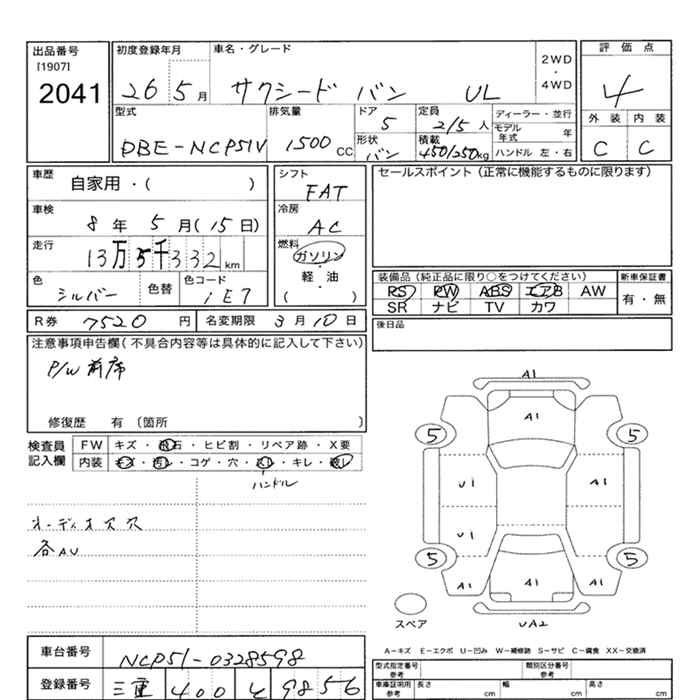 出品番号 初度登録年月 車名・グレード 2WD・4WD 評価点
[1907]
2041 26 5月 サクシード バン UL 4
型式 排気量 ドア 定員 ディーラー・並行 外装 内装
DBE-NCP51V 1500 CC 5 2/5人 モデル年式 年 C C
形状 積載 ハンドル 左・右
バン 450/250kg
車歴 自家用・( ) シフト FAT セールスポイント(正常に機能するものに限ります)
車検 8年 5月(15日) 冷房 AC
走行 13万5千332km 燃料 ガソリン・軽・油 ( )
色 シルバー 色替 色コード 1E7
装備品(純正品に限り○をつけてください) 新車保証書
RS PW ABS エアB AW 有・無
SR ナビ TV カワ
R券 7520円 名変期限 3月10日 後日品
注意事項申告欄(不具合内容等は具体的に記入して下さい)
P/W 前席
修復歴 有〔箇所 〕
検査員記入欄 FW キズ・飛石・ヒビ割・リペア跡・X要
内装 キズ・汚レ・コゲ・穴・スレ・キレ・破レ
ハンドル
オーディオ穴穴
各AU
A1
A1
5 5
U1 A1
U1
5 5
A1 A1 A1
スペア UA2
A-キズ E-エクボ U-凹み W-補修跡 S-サビ C-腐食 XX-交換済
車台番号 NCP51-0328598 型式指定番号 参考 類別区分番号 参考
登録番号 三重 400 そ 9856 車庫証明用 参考 長さ cm 幅 cm 高さ cm